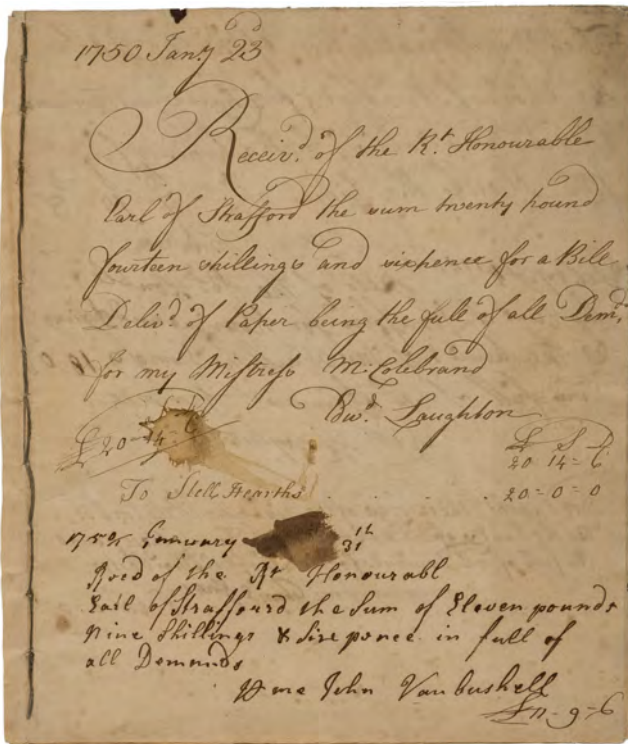 1750 Jan.y 23
Receiv.d of the R.t Honourable
Earl of Strafford the sum twenty pound
fourteen shillings and sixpence for a Bill
Deliv.d of Paper being the full of all Dem.d
for my Mistress M. Colebrand
Edw.d Laughton
£ 20-14-6
£ S D
20 14=6
To Stell Hearths . . . . 20=0=0
31th
Rced of the Rt Honourabl
Earl of Straffourd the Sum of Eleven pounds
nine Shillings & Sixe pence in full of
all Demands
me John Vanbushell
£11-9=6